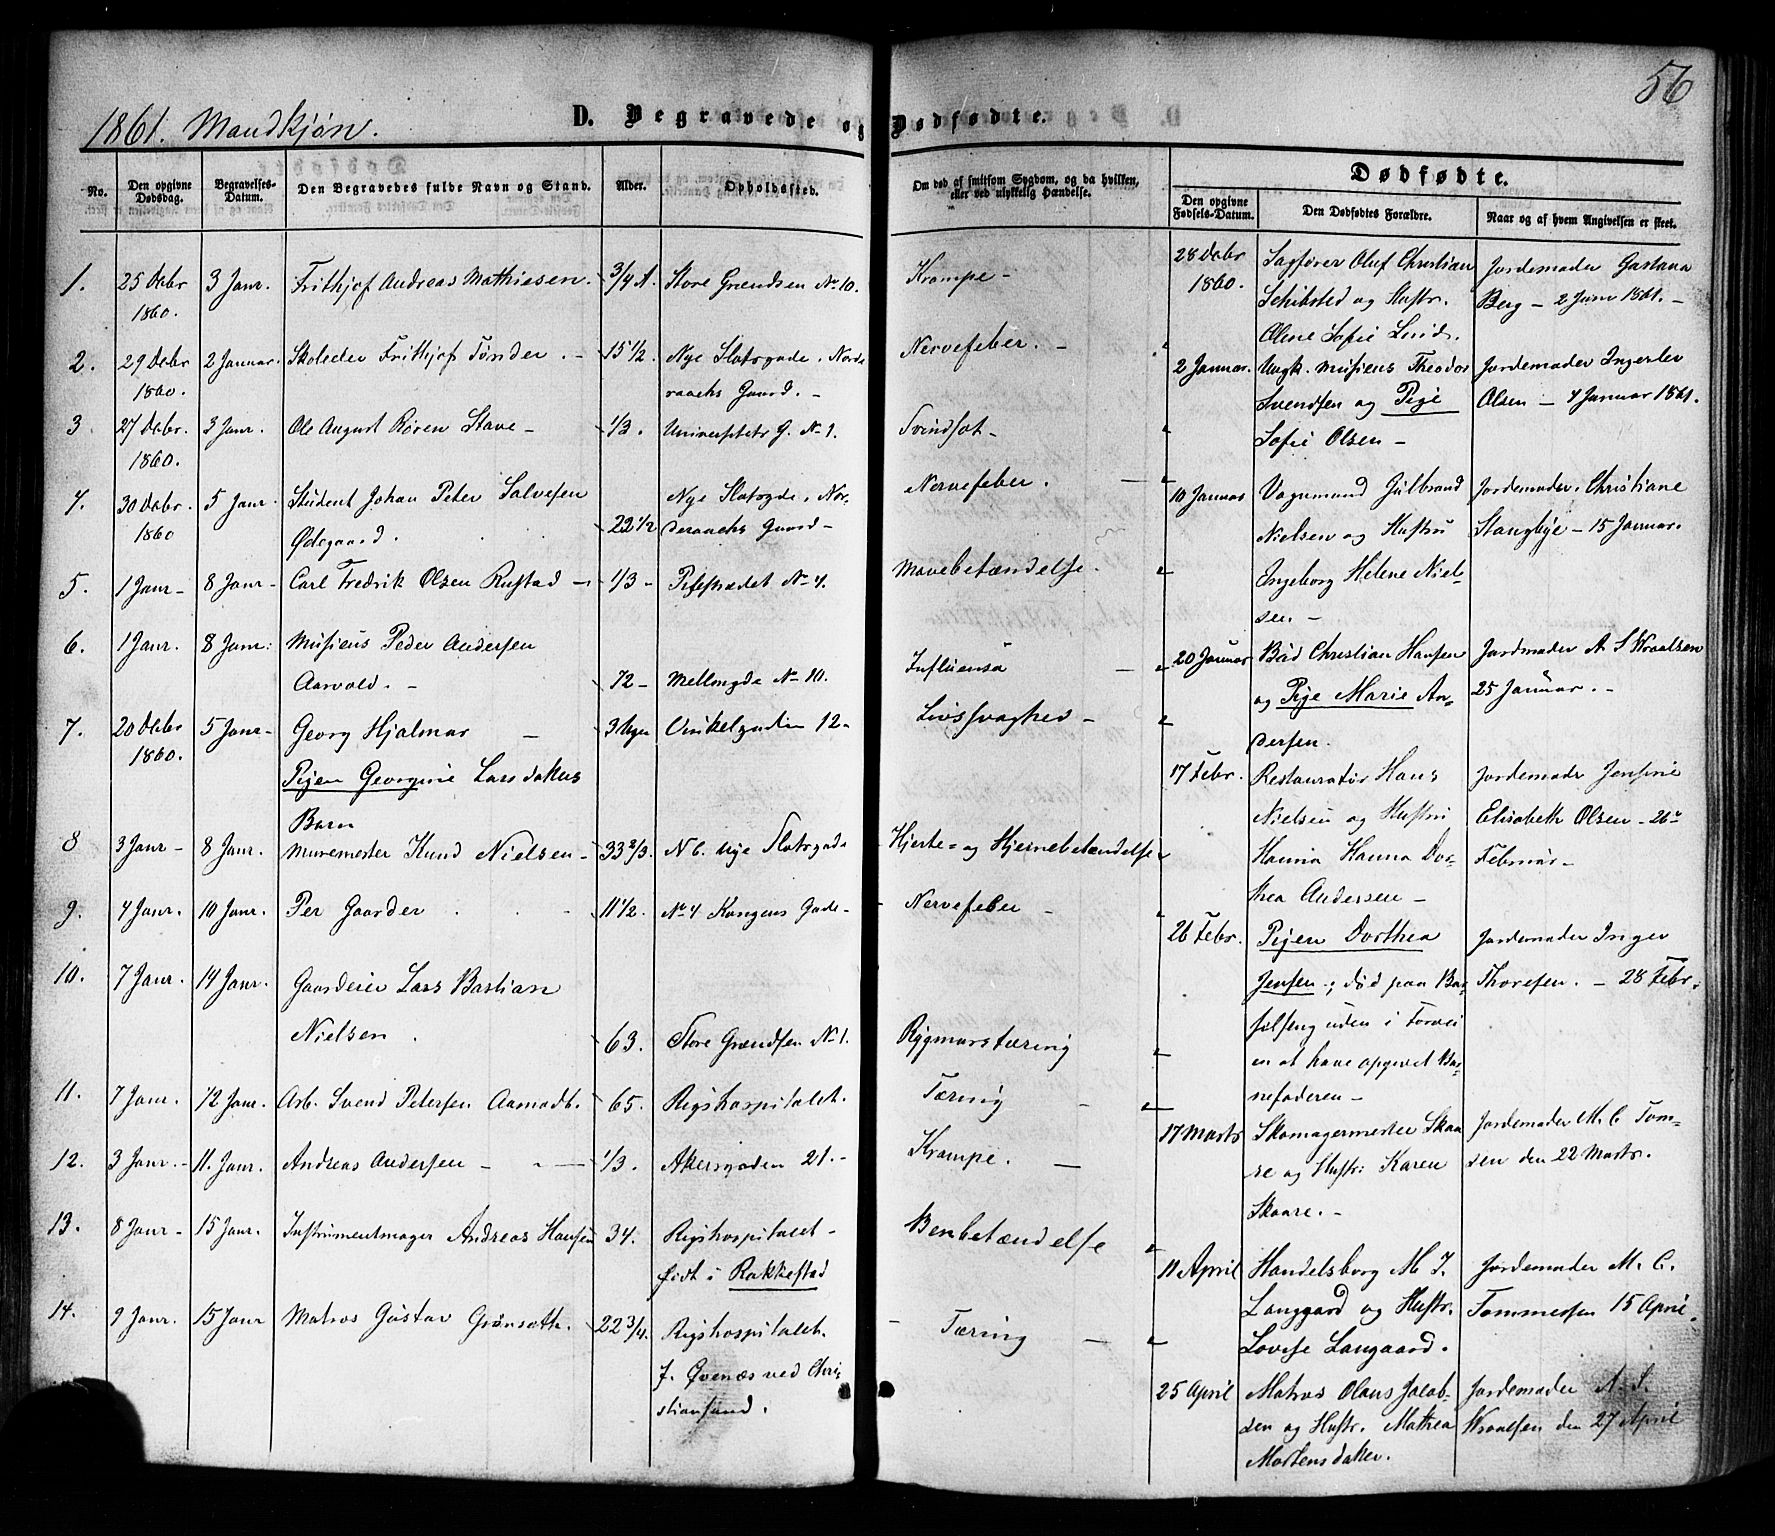 56
1861. Mandkjøn.
D. Begravede og Dødfødte.
No.
Den opgivne Dødsdag.
Begravelses-Datum.
Den Begravedes fulde Navn og Stand.
Alder.
Opholdssted.
Om død af smitsom Sygdom, og da hvilken, eller ved ulykkelig Hændelse.
Dødfødte.
Den opgivne Fødsels-Datum.
Den Dødfødtes Forældre.
Naar og af hvem Angivelsen er skeet.
1. 25 Decbr 1860. 3 Janr. Frithjof Andreas Mathiesen. 3/4 A. Store Grændsen No 10. Krampe -
2. 29 Decbr 1860. 2 Januar. Skoleelev Frithjof Tønder. - 15 1/2 Nye Slotsgade, Norderaachs Gaard. - Nervefeber. -
3. 27 Decbr. 1860. 3 Janr. Ole August Røren Stave - 1/3. Universitets G. No 1. Svindsot -
4. 30 Decbr. 1860 5 Janr. Student Johan Peter Salvesen Ødegaard. 22 1/2 Nye Slotsgde, Norderaachs Gaard - Nervefeber. -
5. 1 Janr - 8 Janr - Carl Fredrik Olsen Rustad - 1/3 - Pibestrædet No 4. Mavebetændelse.
6. 1 Janr. 8 Janr: Musicus Peder Andersen Aarvold. - 72 - Mellemgde No 10. Influensa -
7. 20 Decbr 1860. 5 Janr - Georg Hjalmar - Pigen Georgine Larsdatters Barn 3 Uger Vinkelgaden 12 - Livssvaghed -
8 3 Janr - 8 Janr. Muremester Knud Nielsen - 33 2/3. N 6. nye Slotsgade Hjerte- og Hjernebetændelse
9. 4 Janr. 10 Janr. Per Gaarder 11 1/2. No 4 Kongens Gade - Nervefeber -
10. 7 Janr. 14 Janr. Gaardeier Lars Bastian Nielsen. 63. Store Grændsen No 1. Rygmarstæring
11. 7 Janr. 12 Janr. Arb. Svend Petersen Aamodt. 65. Rigshospitalet. Tæring -
12. 3 Janr. - 11. Janr. Andreas Andersen - 1/3. Akersgaden 21. - Krampe. -
13. 8 Janr - 15 Janr. Instrumentmager Andreas Hansen 34. Rigshospitalet - født i Rakkestad Benbetændelse
14. 9 Janr. 15 Janr Matros Gustav Grønseth. 22 3/4. Rigshospitalet. f. Qvenæs ved Christiansund. Tæring -
28 Decbr 1860. Sagfører Oluf Christian Schibsted og Hustr. Oline Sofie Lind. Jordemoder Gustava Berg - 2 Janr 1861. -
2 Januar. Ungk. Musicus Theodor Svendsen og Pige Sofie Olsen - Jordemoder Ingerlev Olsen - 4 Januar 1861.
10 Januar Vognmand Gulbrand Nielsen og Hustru Ingeborg Helene Nielsen - Jordemoder, Christiane Stangbye - 15 Januar.
20 Januar Christian Hansen og Pige Marie Andersen. Jordmoder A S Wraalsen 25 Januar. -
17 Febr. Restauratør Hans Nielsen og Hustru Hanna Dorthea Andersen - Jordemoder Jensine Elisabeth Olsen - 26 Februar -
26 Febr. Pigen Dorthea Jensen; død paa Barselseng uden i Forveien at have opgivet Barnefaderen - Jordemoder Inger Thoresen. - 28 Febr.
17 Marts Skomagermester Skaare og Hustr: Karen Skaare. - Jordemoder M. C Tomsen den 22 Marts.
11 April Handelsborg M J. Langgard og Hustr. Lovise Langaard. Jordemoder M. C. Tommesen 15 April.
25 April Matros Olaus Jacobsen og Hustr. Mathea Mortensdatter. Jordemoder A. S. Wraalsen den 27 April